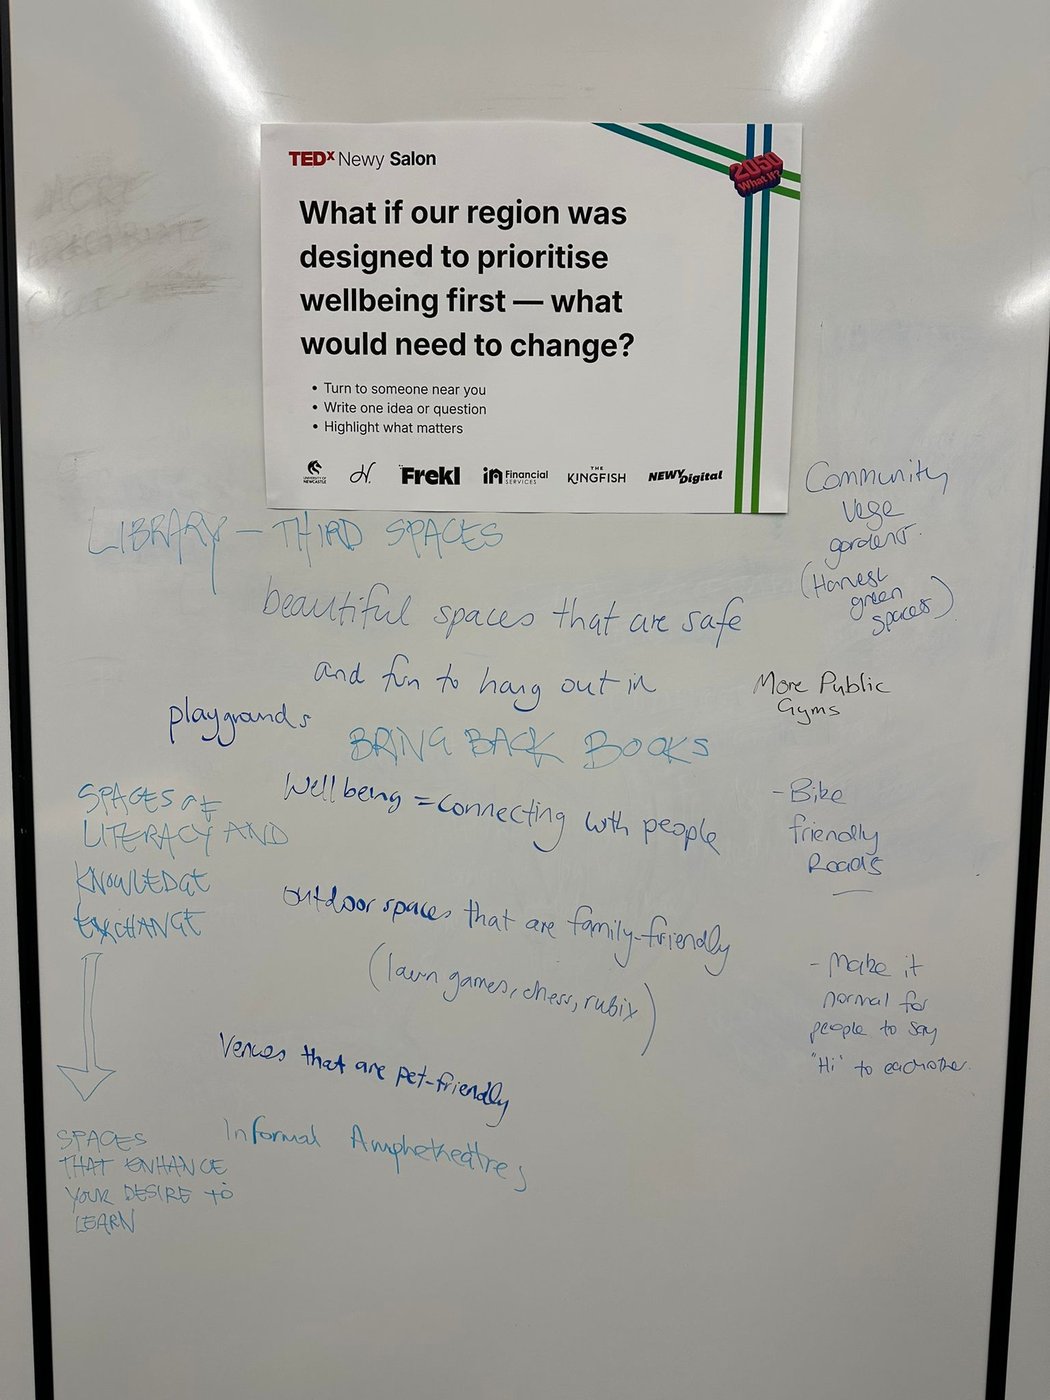 TEDx Newy Salon
2050
What If?
What if our region was
designed to prioritise
wellbeing first — what
would need to change?
• Turn to someone near you
• Write one idea or question
• Highlight what matters
UNIVERSITY OF
NEWCASTLE
H.
Frekl
in Financial
SERVICES
THE
KINGFISH
NEWY Digital
LIBRARY – THIRD SPACES
beautiful spaces that are safe
and fun to hang out in
playgrounds
BRING BACK BOOKS
Wellbeing = connecting with people
SPACES OF
LITERACY AND
KNOWLEDGE
EXCHANGE
outdoor spaces that are family-friendly
(lawn games, chess, rubix)
Venues that are pet-friendly
Informal Amphetheatres
SPACES
THAT ENHANCE
YOUR DESIRE TO
LEARN
Community
Vege
garden
(Harvest
green
spaces)
More Public
Gyms
- Bike
friendly
Roads
- Make it
normal for
people to say
"Hi" to eachother.